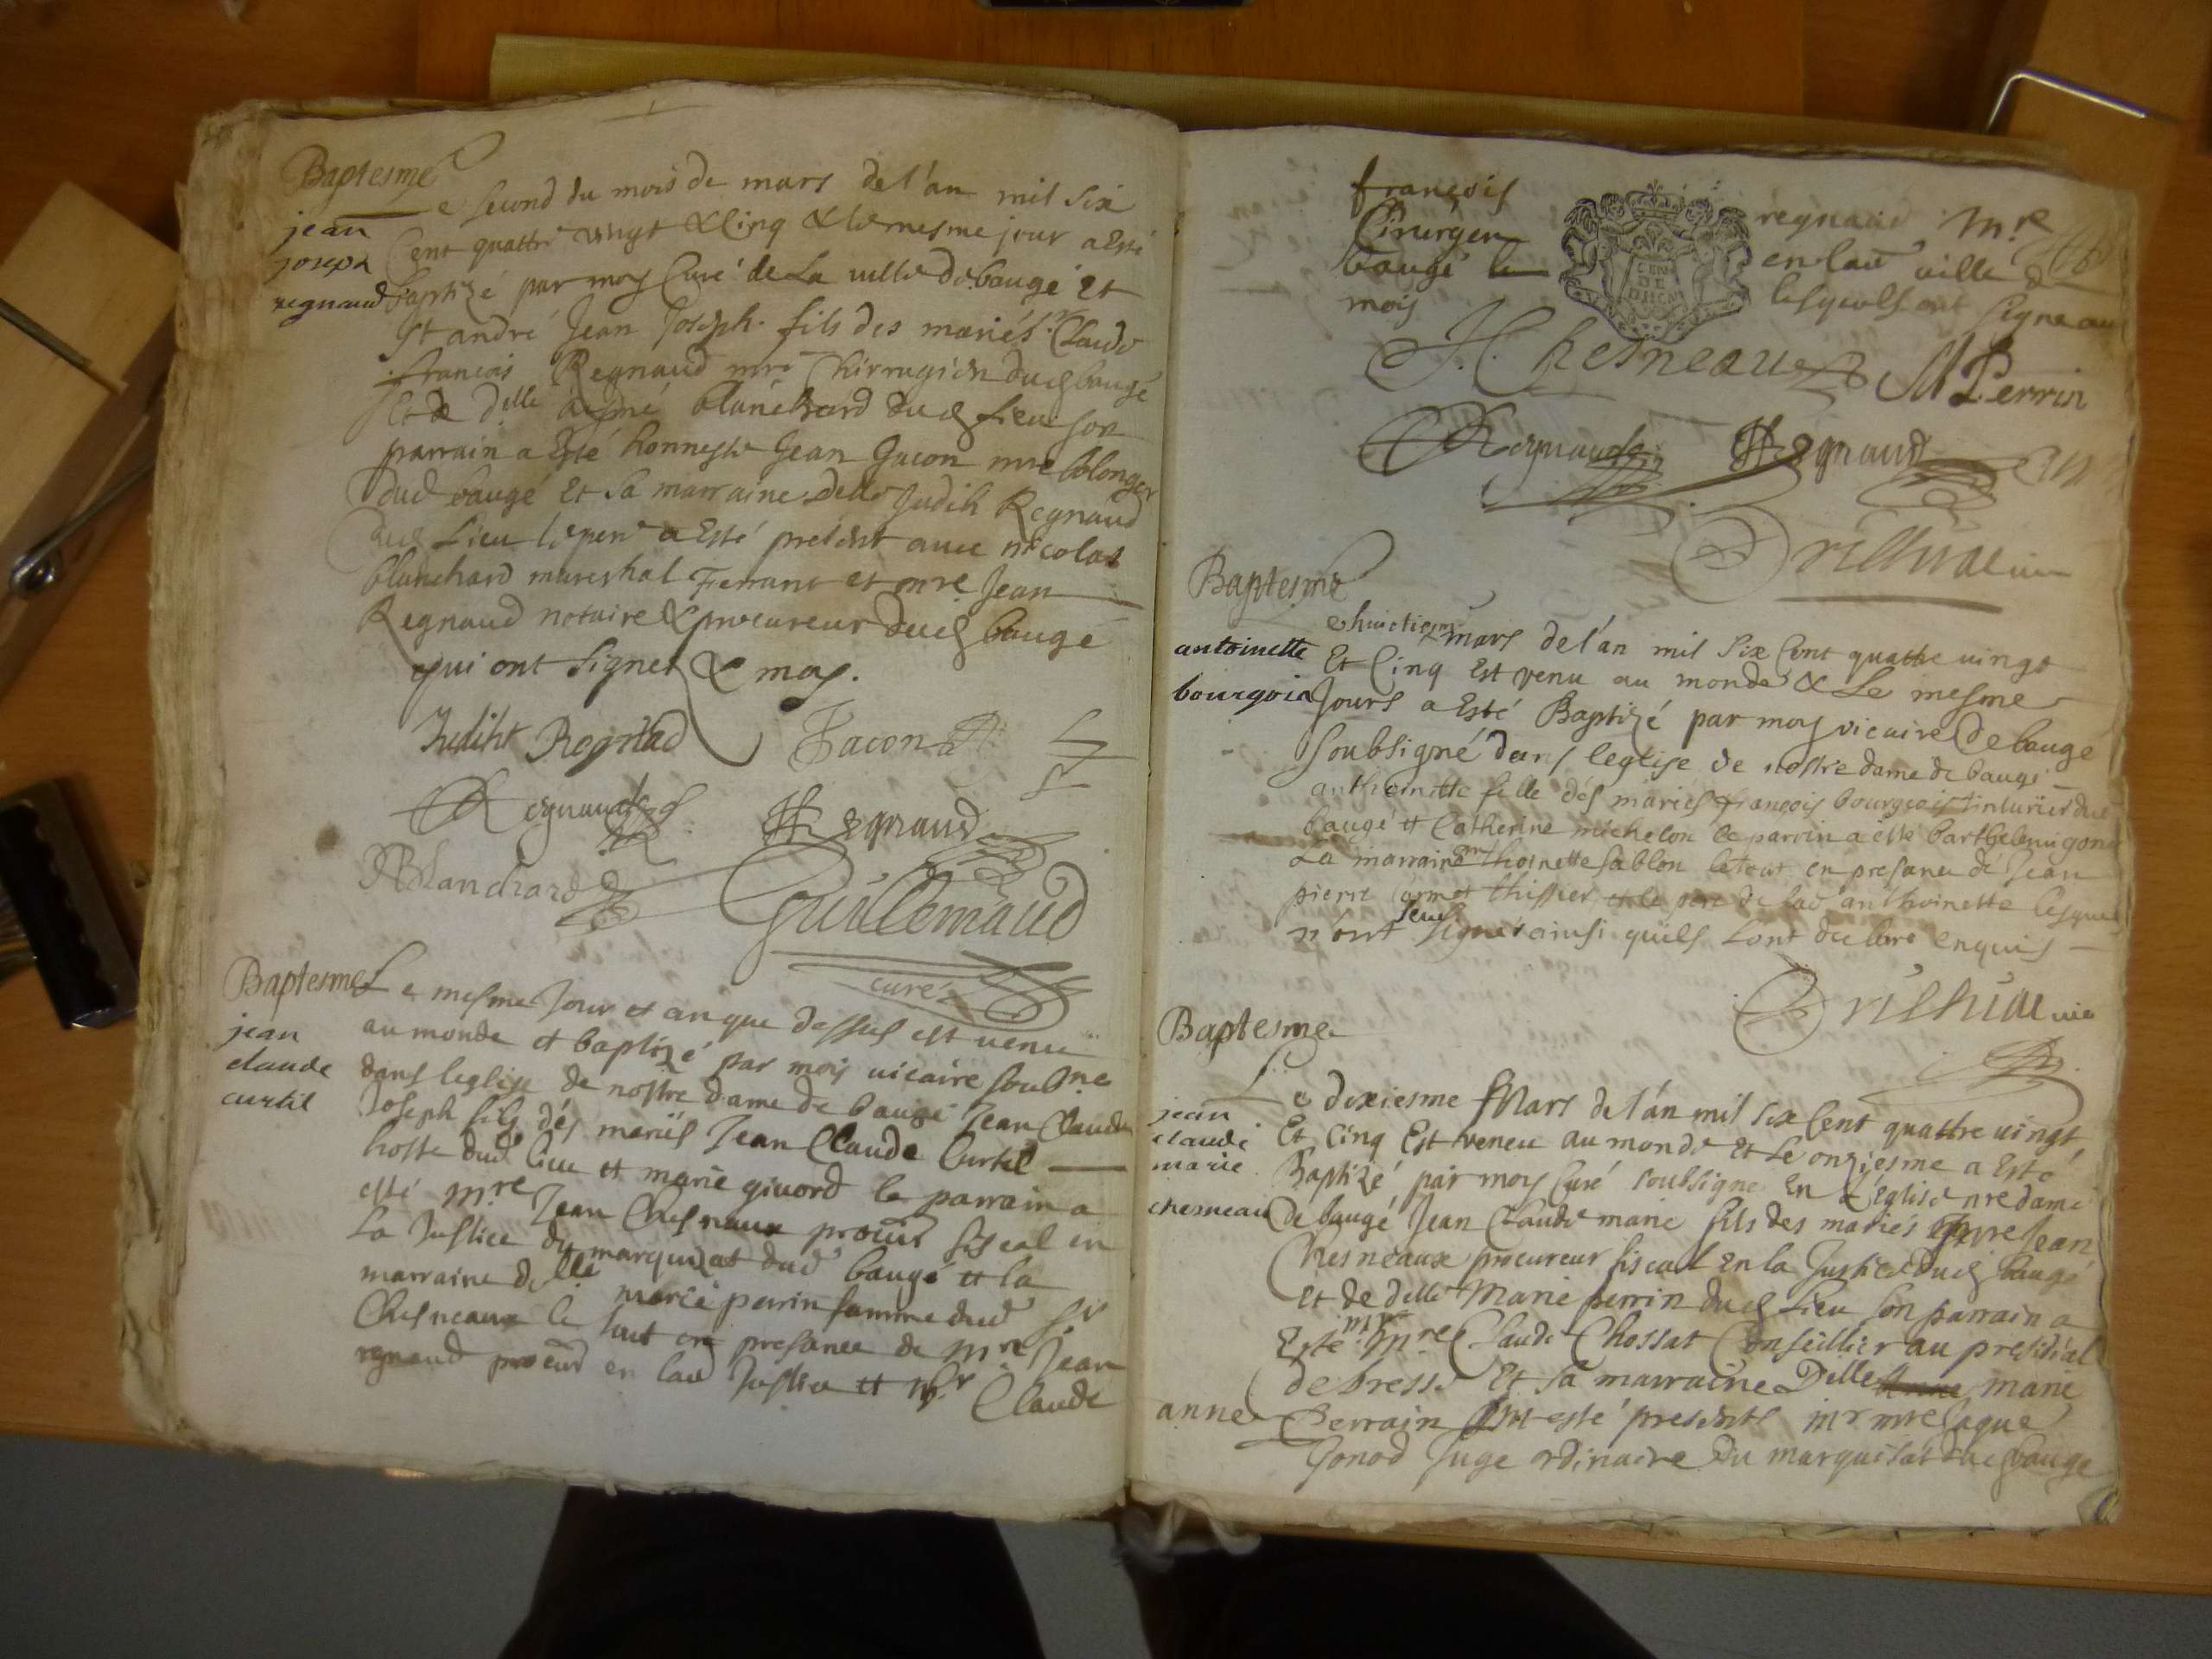 Baptesme
jean
joseph
regnaud
e second du mois de mars de l'an mil six
Cent quattre vingt & Cinq & le mesme jour a Esté
baptizé par moy Curé de La ville de baugé Et
St andré Jean Joseph fils des mariés Sr Claude
francois Regnaud mre Chirrugien dud baugé
Et de delle aymé blanchard dud Lieu son
parrain a Esté honneste Jean Gacon mre bolonger
dud baugé Et sa marraine delle Judih Regnaud
dud Lieu le pere a Esté present avec nicolas
blanchard mareshal Ferrant et mre Jean
Regnaud notaire & procureur dud baugé
qui ont signer & moy.
Judiht Regnad Gacon
Regnaud Regnaud
NBlanchard Guillemaud
curé
Baptesme
jean
claude
curtil
Le mesme Jour et an que dessus est venu
au monde et baptizé par moy vicaire soubne
dans leglise de nostre dame de baugé Jean Claude
Joseph fils dés mariés Jean Claude Curtil
hoste dud lieu et marie givord le parrain a
esté mre Jean Chesneaux procur fiscal en
La Justice du marquizat dud baugé et la
marraine delle marie perrin famme dud Sr
Chesneaux le tout en presance de mre Jean
regnaud procur en lad Justice et Sr Claude
françois regnaud Mre
Cirurgen en lad ville de
baugé le lesquels ont signe au
mois
CEN
DE
J. Chesneaux M Perrin
Regnaud Regnaud
vic
Baptesme
antoinette
bourgoia
e huictiesm mars de l'an mil six Cent quattre vingt
Et Cinq Est venu au monde & Le mesme
Jours a Esté Baptizé par moy vicaire de baugé
soubsigné dans leglise de nostre dame de baugé
anthoinette fille dés mariés françois bourgeois tinturier dud
baugé et Catherine michelon le parrin a esté barthelemi gono
La marraine anthoinette sablon le tout en presance de Jean
pierre Carmet thissier et le pere de lad anthoinette lesquels
n'ont sceu signer ainsi quils Lont declare enquis
vic
Baptesme
jean
claude
marie
chesneau
Le dixiesme Mars de l'an mil six Cent quattre vingt
Et Cinq Est veneu au monde Et Le onziesme a Esté
Baptizé par moy Curé soubsigne En L'Eglise nre dame
de baugé Jean Claude marie fils des mariés mre Jean
Chesneaux procureur fiscal En la Justice dud baugé
Et de delle Marie perrin dud Lieu son parrain a
Esté mre Claude Chossat Conseillier au presidial
de bresse Et sa marraine Delle marie
anne Perrain Ont esté presents mr mre Jaque
Gonod Juge ordinaire du marquisat dud baugé